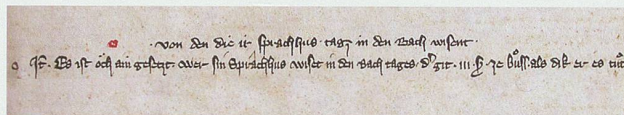 · von den die ir sprachhus · tags in den Bach wisent ·
It. Es ist öch ain gesetzt · wer sin Sprachhus wiset in den Bach tages · dʼ git · iij · ß · ze bůss · als dik er es tůt